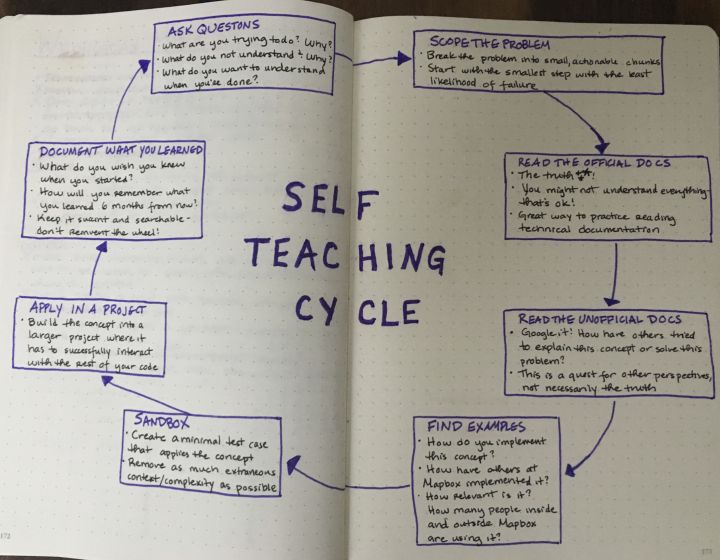 ASK QUESTONS
• What are you trying to do? Why?
• What do you not understand & Why?
• What do you want to understand
when you're done?
SCOPE THE PROBLEM
• Break the problem into small, actionable chunks
• Start with the smallest step with the least
likelihood of failure
READ THE OFFICIAL DOCS
• The truth!
• You might not understand everything-
that's ok!
• Great way to practice reading
technical documentation
READ THE UNOFFICIAL DOCS
• Google it! How have others tried
to explain this concept or solve this
problem?
• This is a quest for other perspectives,
not necessarily the truth
FIND EXAMPLES
• How do you implement
this concept?
• How have others at
Mapbox implemented it?
• How relevant is it?
How many people inside
and outside Mapbox
are using it?
SANDBOX
• Create a minimal test case
that applies the concept
• Remove as much extraneous
context/complexity as possible
APPLY IN A PROJECT
• Build the concept into a
larger project where it
has to successfully interact
with the rest of your code
DOCUMENT WHAT YOU LEARNED
• What do you wish you knew
when you started?
• How will you remember what
you learned 6 months from now?
• Keep it succinct and searchable-
don't reinvent the wheel!
SELF
TEACHING
CYCLE
172
173